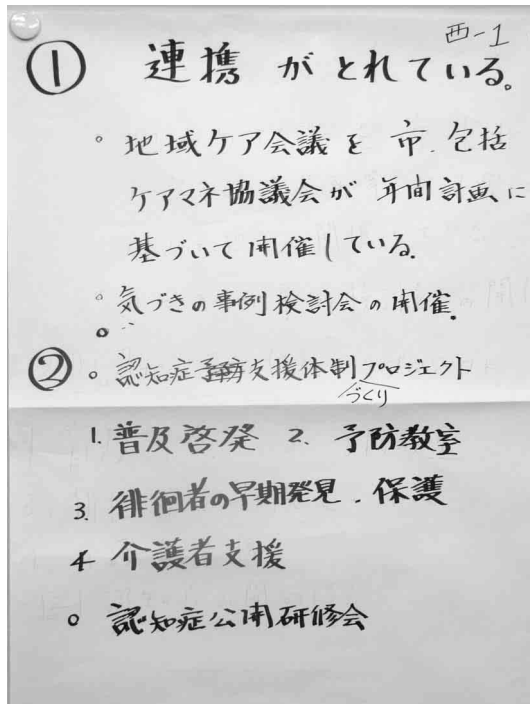 西-1
① 連携がとれている。
。地域ケア会議を市.包括
ケアマネ協議会が年間計画に
基づいて開催している.
。気づきの事例検討会の開催.
② 。認知症支援体制プロジェクト
づくり
1. 普及啓発 2. 予防教室
3. 徘徊者の早期発見.保護
4 介護者支援
。認知症公開研修会